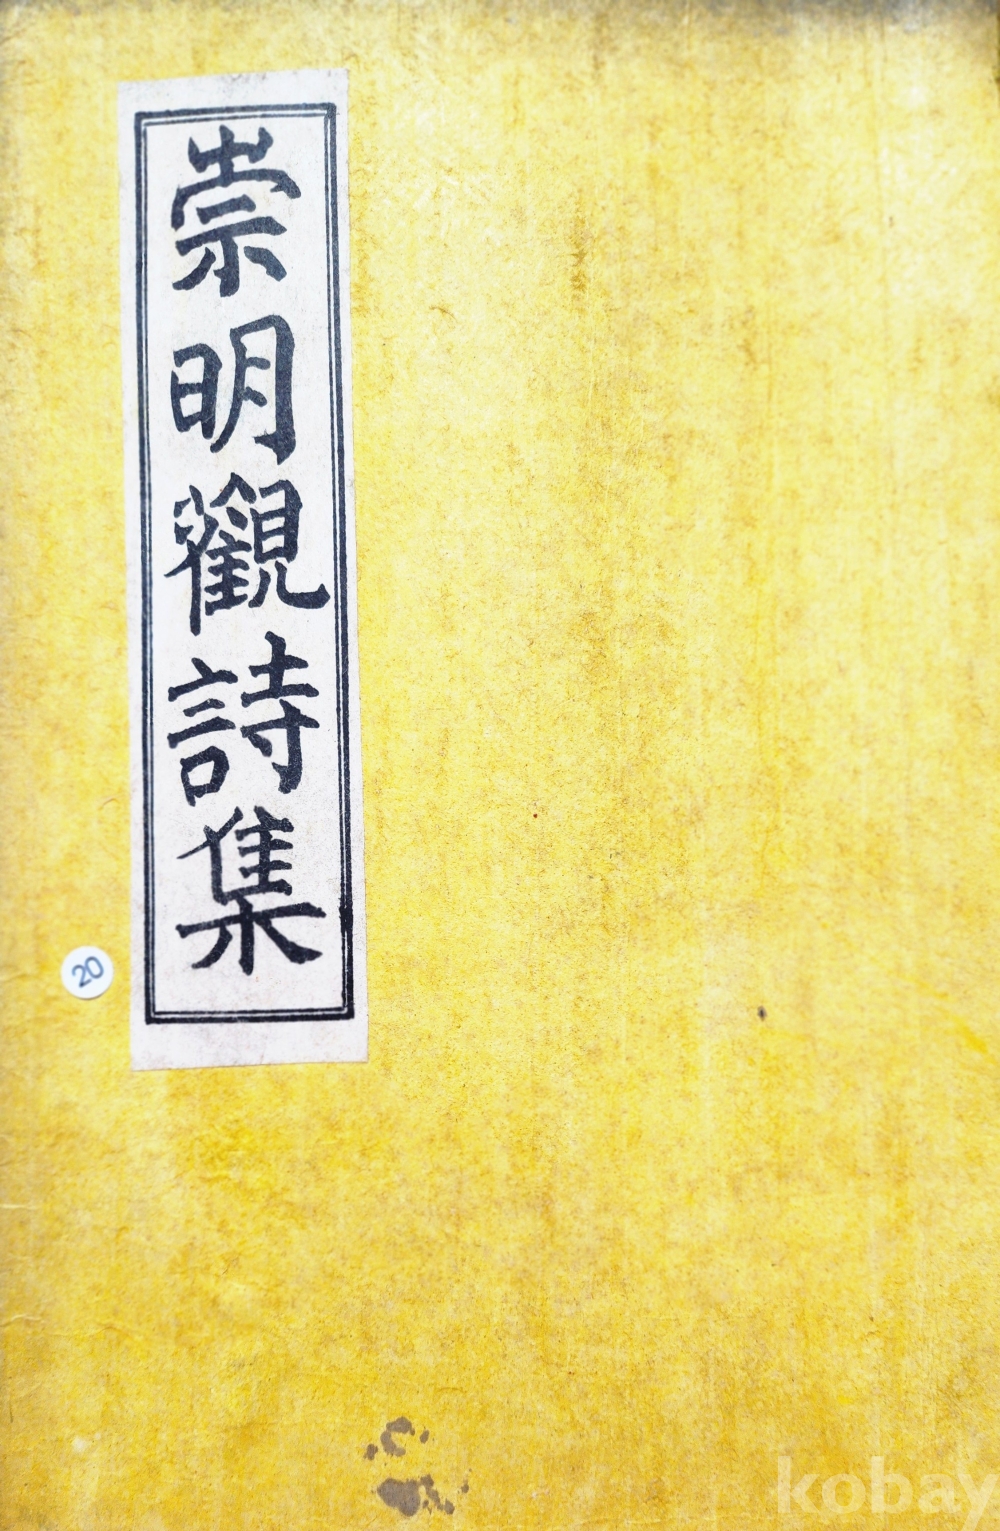 崇明觀詩集
20
kobay